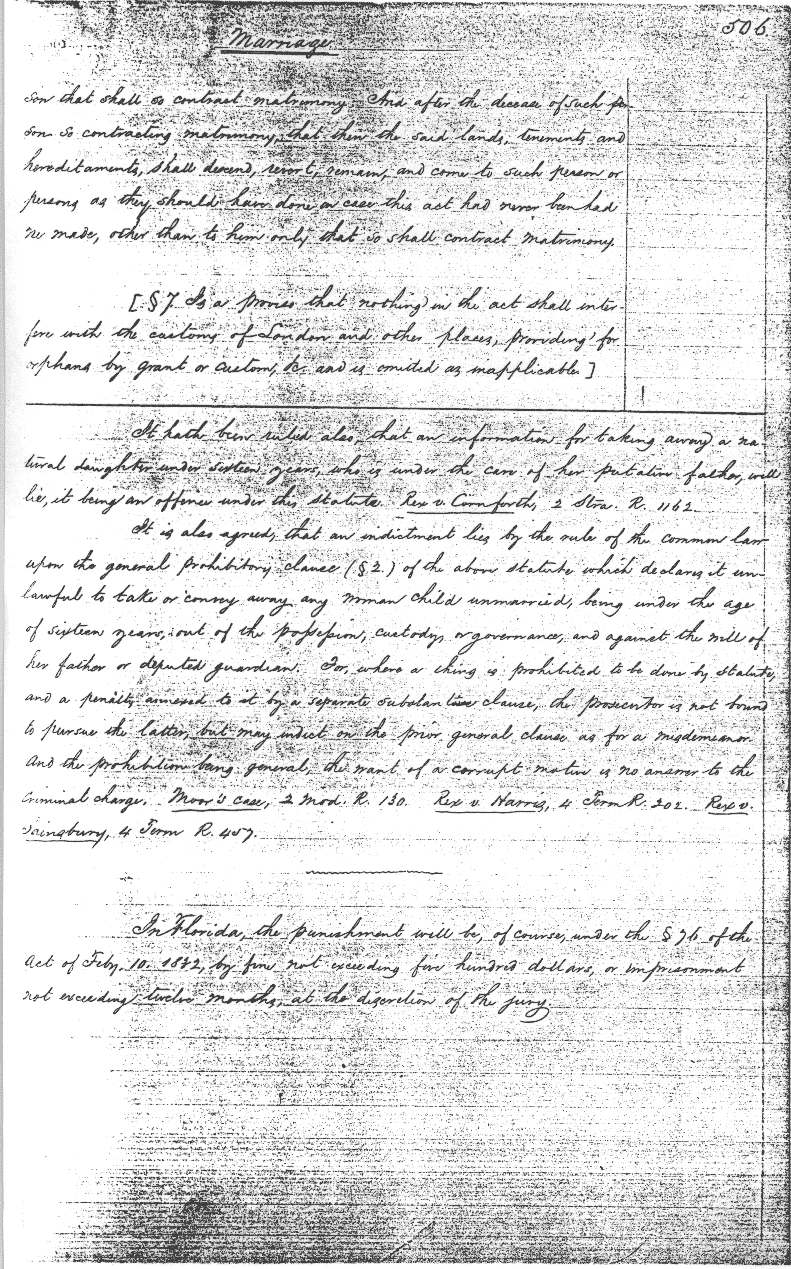 Marriage 506
son that shall so contract matrimony. And after the decease of such per-
son so contracting matrimony, that then the said lands, tenements and
hereditaments, shall descend, revert, remain, and come to such person or
persons as they should have done in case this act had never been had
ne made, other than to him only that so shall contract matrimony.
[§ 7 Is a proviso that nothing in the act shall inter-
fere with the customs of London and other places, providing for
orphans by grant or custom, &c. and is omitted as inapplicable.]
It hath been ruled also, that an information for taking away a na-
tural daughter under sixteen years, who is under the care of her putative father, will
lie, it being an offence under this statute. Rex v. Cornforth, 2 Stra. R. 1162.
It is also agreed, that an indictment lies by the rule of the common law
upon the general prohibitory clause (§ 2.) of the above statute which declares it un-
lawful to take or convey away any woman child unmarried, being under the age
of sixteen years, out of the possession, custody, or governance, and against the will of
her father or deputed guardian. For, where a thing is prohibited to be done by statute,
and a penalty annexed to it by a separate substantive clause, the prosecutor is not bound
to pursue the latter, but may indict on the prior general clause as for a misdemeanor.
And the prohibition being general, the want of a corrupt motive is no answer to the
criminal charge. Moor's case, 2 Mod. R. 130. Rex v. Harris, 4 Term R. 202. Rex v.
Sainsbury, 4 Term R. 457.
In Florida, the punishment will be, of course, under the § 76 of the
Act of Feby. 10. 1832, by fine not exceeding five hundred dollars, or imprisonment
not exceeding twelve months, at the discretion of the jury.